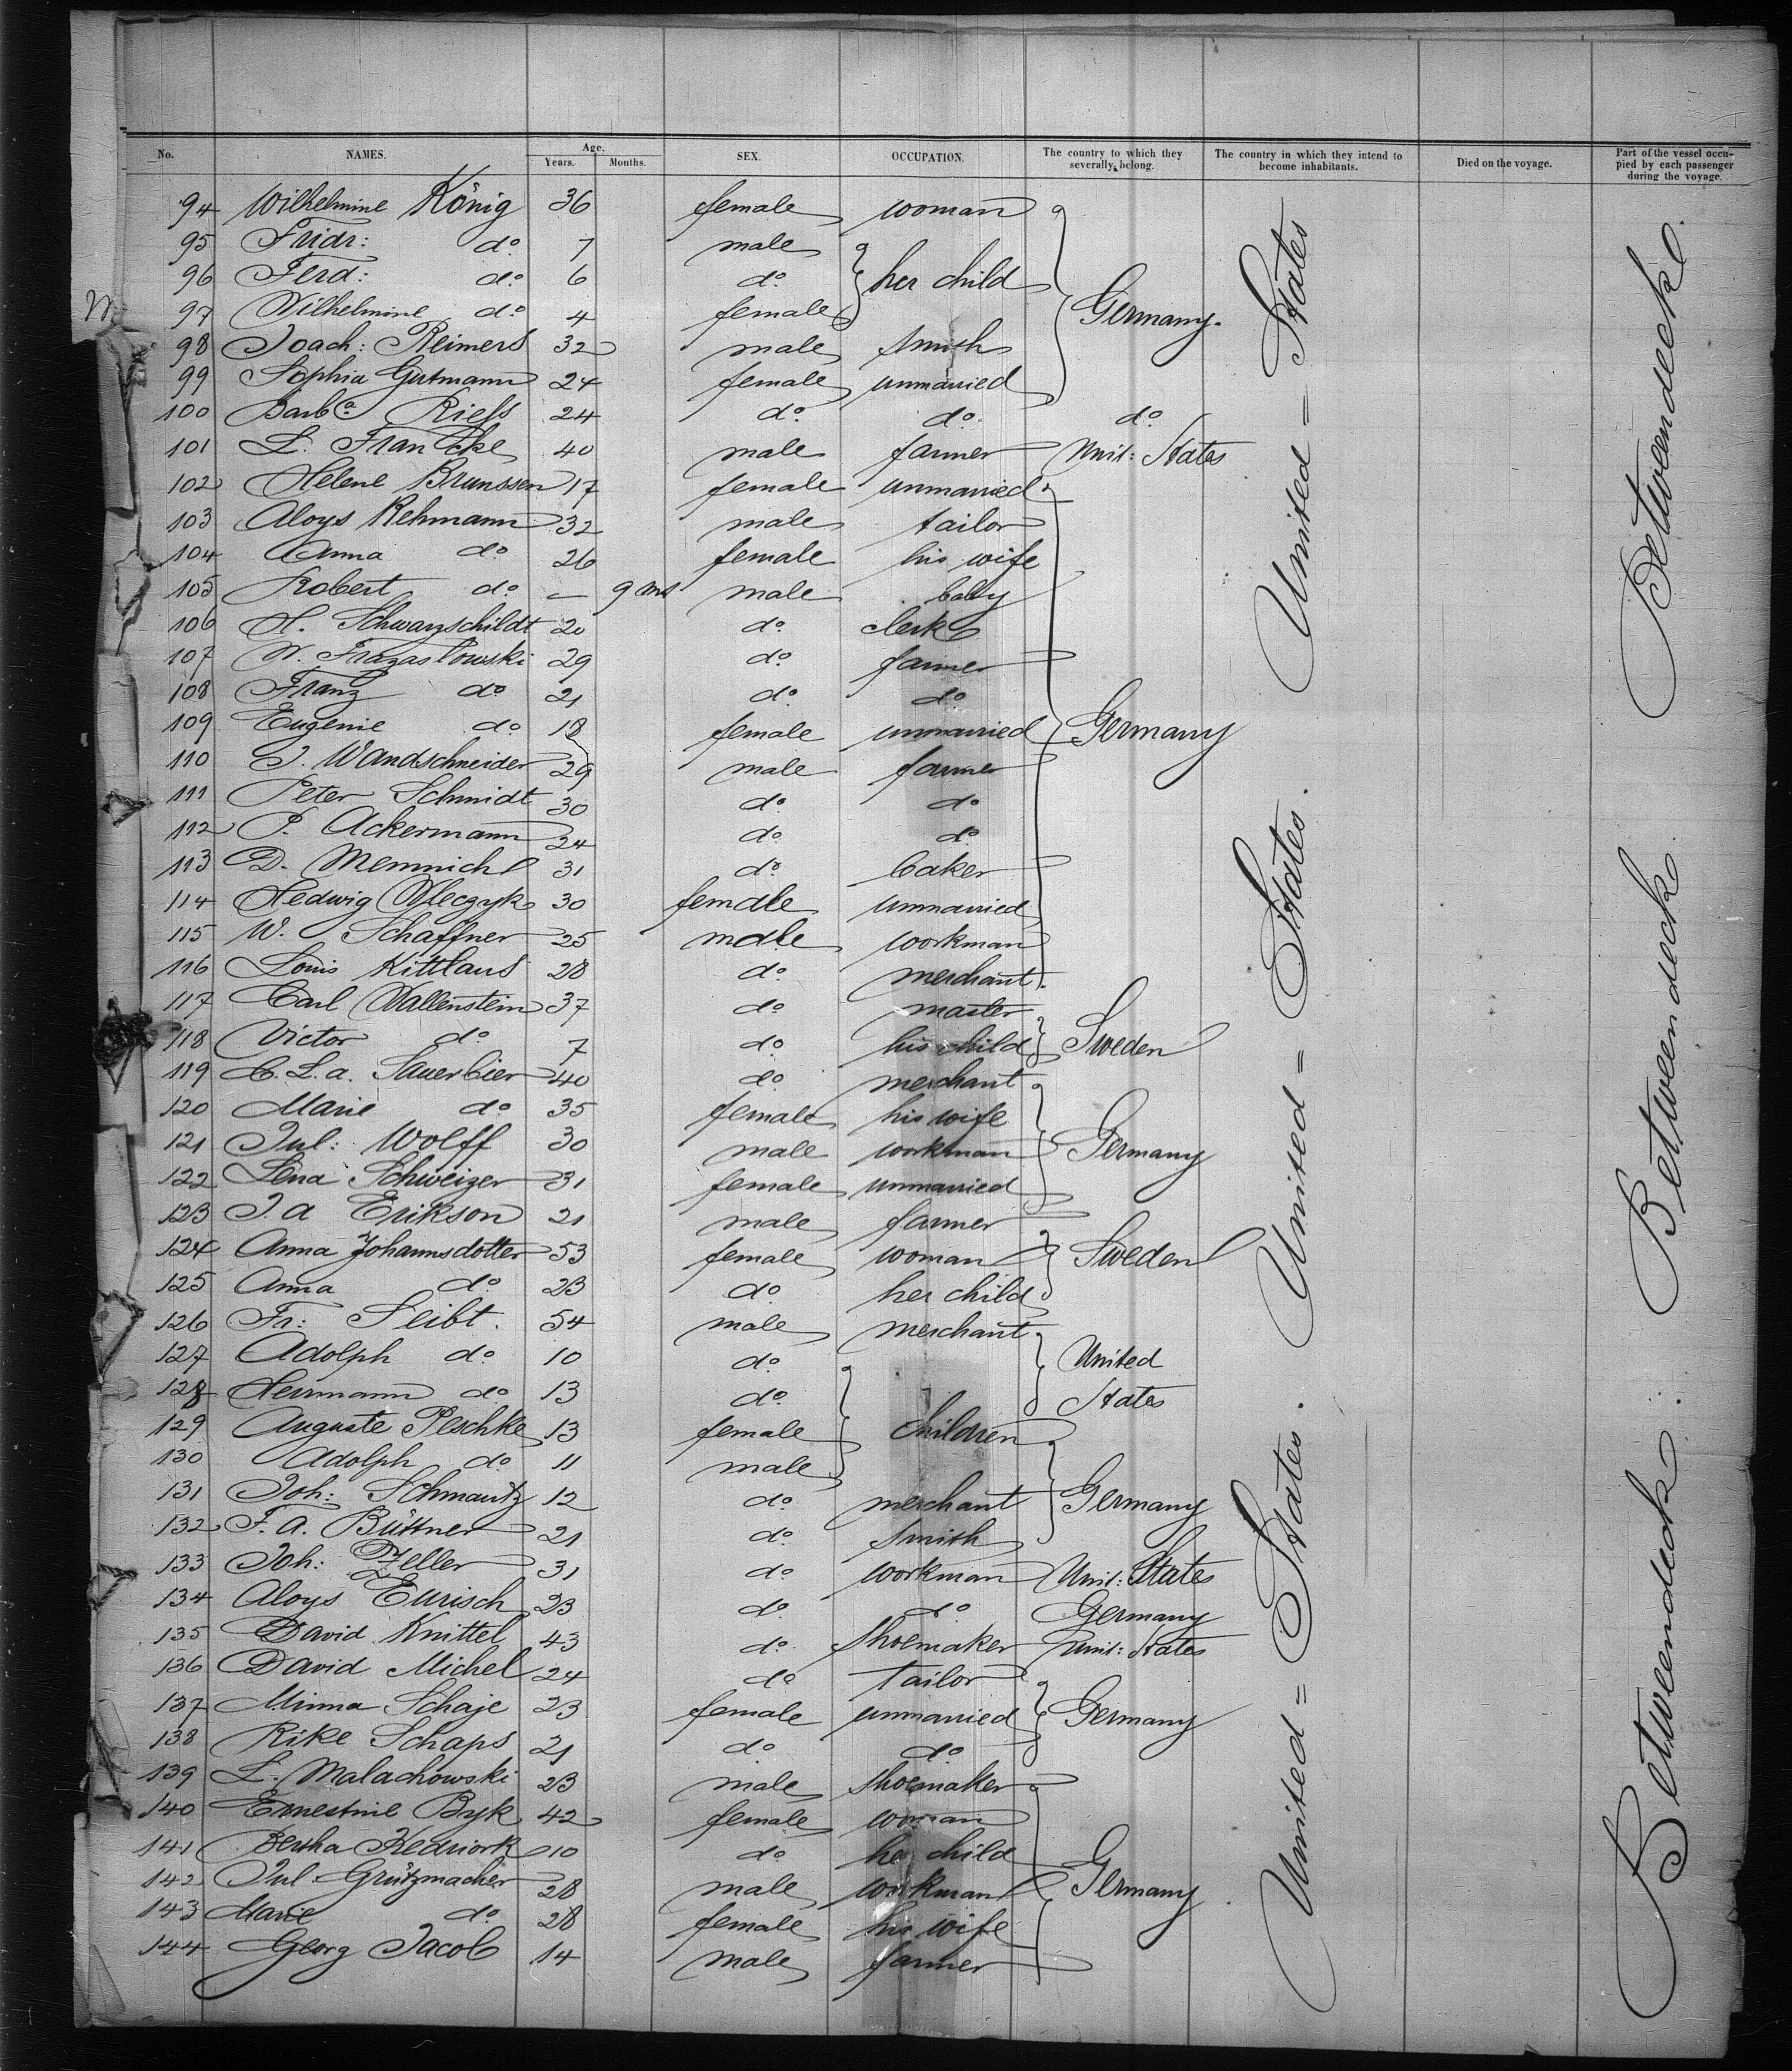 No. NAMES. Age. Years. Months. SEX. OCCUPATION. The country to which they severally belong. The country in which they intend to become inhabitants. Died on the voyage. Part of the vessel occupied by each passenger during the voyage.
94 Wilhelmine König 36 female woman
95 Fridr: do 7 male
96 Ferd: do 6 do her child
97 Wilhelmine do 4 female Germany.
98 Joach: Reimers 32 male smith
99 Sophia Gutmann 24 female unmarried
100 Barba Riess 24 do do do
101 L. Francke 40 male farmer Unit: States
102 Helene Brunssen 17 female unmarried
103 Aloys Rehmann 32 male tailor
104 Anna do 26 female his wife
105 Robert do — 9 ms male baby
106 H. Schwarzschildt 20 do clerk
107 29 do farmer
108 Franz do 21 do do
109 Eugenie do 18 female unmarried Germany
110 J. Wandschneider 29 male farmer
111 Peter Schmidt 30 do do
112 P. Ackermann 24 do do
113 D. 31 do baker
114 Hedwig 30 female unmarried
115 W. Schaffner 25 male workman
116 Louis Kittlaus 28 do merchant
117 Carl Wallenstein 37 do master
118 Victor do 7 do his child Sweden
119 C. L. a. Sauerbier 40 do merchant
120 Marie do 35 female his wife
121 Jul: Wolff 30 male workman Germany
122 Lena Schweizer 31 female unmarried
123 J. a Erikson 21 male farmer
124 Anna Johannsdotter 53 female woman Sweden
125 Anna do 23 do her child
126 Fr: Seibt. 54 male merchant
127 Adolph do 10 do United
128 Herrmann do 13 do States
129 Auguste Peschke 13 female children
130 Adolph do 11 male
131 Joh: Schmautz 12 do merchant Germany
132 F. A. Büttner 21 do smith
133 Joh: Zeller 31 do workman Unit: States
134 Aloys 23 do do Germany
135 David Knittel 43 do shoemaker Unit: States
136 David Michel 24 do tailor
137 Minna Schaje 23 female unmarried Germany
138 Rike Schaps 21 do do
139 L. Malachowski 23 male shoemaker
140 Ernestine Byk 42 female woman
141 Bertha 10 do her child
142 Jul. Grützmacher 28 male workman Germany
143 Marie do 28 female his wife
144 Georg Jacob 14 male farmer
United = States. United = States. United = States
Betweendeck. Betweendeck. Betweendeck.